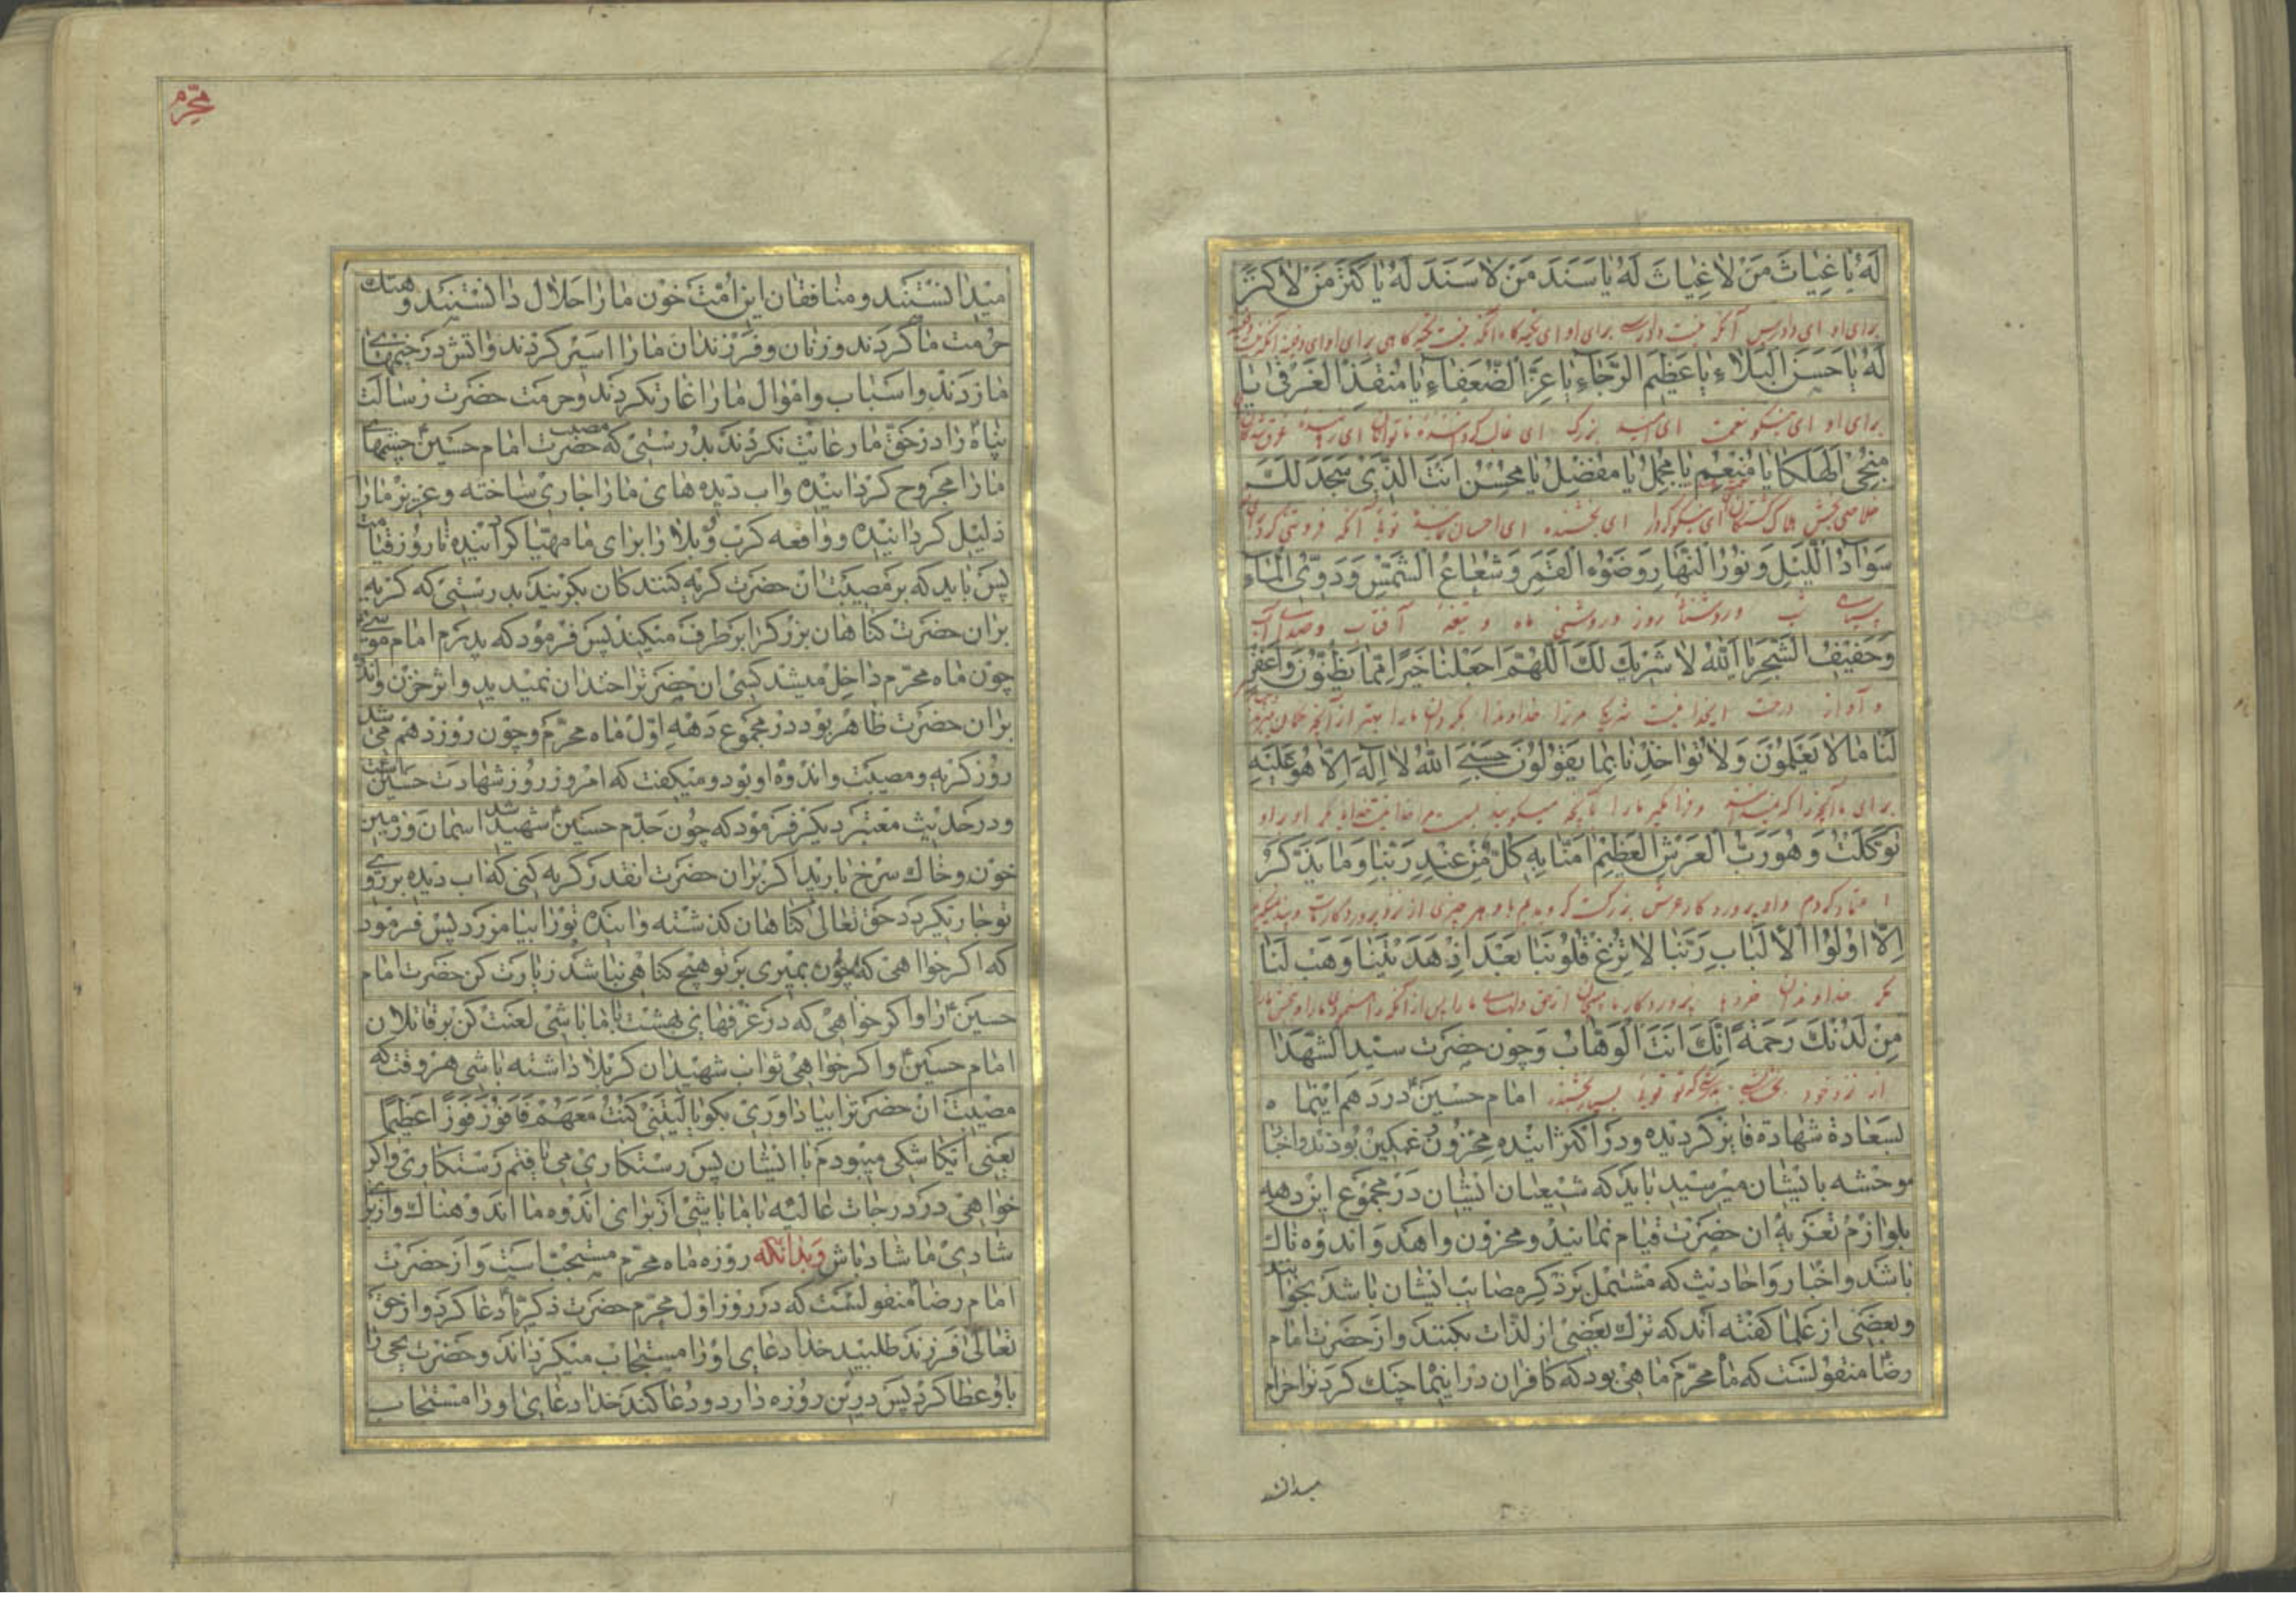 لَهُ يَا غِيَاثَ مَنْ لَا غِيَاثَ لَهُ يَا سَنَدَ مَنْ لَا سَنَدَ لَهُ يَا كَنْزَ مَنْ لَا كَنْزَ
برای او ای دادرس آنکه نیست دادرسی برای او ای تکیه گاه آنکه نیست تکیه گاهی برای او ای
لَهُ يَا حَسَنَ الْبَلَاءِ يَا عَظِيمَ الرَّجَاءِ يَا عِزَّ الضُّعَفَاءِ يَا مُنْقِذَ الْغَرْقَى يَا
برای او ای نیکو نعمت ای امید بزرگ ای
مُنْجِيَ الْهَلْكَى يَا مُنْعِمُ يَا مُجْمِلُ يَا مُفْضِلُ يَا مُحْسِنُ أَنْتَ الَّذِي سَجَدَ لَكَ
ای نیکوکردار ای بخشنده ای احسان کننده توئی آنکه فروتنی کرد برای
سَوَادُ اللَّيْلِ وَنُورُ النَّهَارِ وَضَوْءُ الْقَمَرِ وَشُعَاعُ الشَّمْسِ وَدَوِيُّ الْمَاءِ
سیاهی شب و روشنائی روز و روشنی ماه و آفتاب و صدای آب
وَحَفِيفُ الشَّجَرِ يَا اَللّٰهُ لَا شَرِيكَ لَكَ اَللّٰهُمَّ اجْعَلْنَا خَيْرًا مِمَّا يَظُنُّونَ وَاغْفِرْ
و آواز درخت ای خدا نیست شریکی مر ترا خداوندا بگردان ما را بهتر از آنچه گمان میبرند
لَنَا مَا لَا يَعْلَمُونَ وَلَا تُؤَاخِذْنَا بِمَا يَقُولُونَ حَسْبِيَ اللّٰهُ لَا إِلٰهَ إِلَّا هُوَ عَلَيْهِ
برای ما آنچه را که و فرا مگیر ما را بآنچه میگویند بس است مرا خدا نیست خدائی مگر او بر او
تَوَكَّلْتُ وَهُوَ رَبُّ الْعَرْشِ الْعَظِيمِ اٰمَنَّا بِهِ كُلٌّ مِنْ عِنْدِ رَبِّنَا وَمَا يَذَّكَّرُ
اعتماد کردم و او پروردگار عرش بزرگست گرویدیم با و هر چیزی از نزد پروردگار ماست و پند نمیگیرد
إِلَّا أُولُوا الْأَلْبَابِ رَبَّنَا لَا تُزِغْ قُلُوبَنَا بَعْدَ إِذْ هَدَيْتَنَا وَهَبْ لَنَا
مگر خداوندان خردها پروردگار ما از حق دلهای ما را پس از آنکه
مِنْ لَدُنْكَ رَحْمَةً إِنَّكَ أَنْتَ الْوَهَّابُ وَچون حضرت سید الشهدا
از نزد خود بخشایشی بدرستی که تو توئی بسیار بخشنده امام حسین ع در دهم اینماه
بسعادة شهادة فایز کردیده ودر اکثر ائیده محزون و غمکین بودند واخبار
موحشه بایشان میرسید باید که شیعیان ایشان در مجموع این دهه
بلوازم تعزیه ان حضرت قیام نمائید و محزون واهمد و اندوه ناك
باشد واخبار واحادیث که مشتمل بر ذکر مصائب ایشان باشد بخوانند
وبعضی از علما کفته اند که ترك بعضی از لذات بکنند واز حضرت امام
رضا ع منقولست که ماه محرم ماهی بود که کافران در اینماه جنك کردنرا حرام
میدانستند
محرم
میدانستند ومنافقان این امت خون مارا حلال دانستند و هتك
حرمت ما کردند وزنان وفرزندان مارا اسیر کردند واتش در خیمهای
ما زدند واسباب واموال مارا غارت کردند وحرمت حضرت رسالت
پناه را در حق ما رعایت نکردند بدرستی که مصیبت حضرت امام حسین ع چشمهای
مارا مجروح کردانیده واب دیده های مارا جاری ساخته وعزیز مارا
ذلیل کردانیده وواقعه کرب وبلا را برای ما مهیا کردانیده تا روز قیامت
پس باید که بر مصیبت ان حضرت کریه کنند کان بکریند بدرستی که کریه
بران حضرت کناهان بزرك را برطرف میکند پس فرمود که پدرم امام موسی
چون ماه محرم داخل میشد کسی ان حضرترا خندان نمیدید واثر حزن واندوه
بران حضرت ظاهر بود در مجموع دههٔ اول ماه محرم وچون روز دهم می شد
روز کریه ومصیبت واندوه او بود ومیکفت که امروز روز شهادت حسین است
ودر حدیث معتبر دیکر فرمود که چون جدم حسین ع شهید شد اسمان وزمین
خون وخاك سرخ بارید اکر بران حضرت انقدر کریه کنی که اب دیده بر روی
تو جاری کردد حق تعالی کناهان کذشته وایندهٔ تورا بیامرزد پس فرمود
که اکر خواهی که چون بمیری بر تو هیچ کناهی نباشد زیارت کن حضرت امام
حسین ع را واکر خواهی که در غرفهای بهشت با ما باشی لعنت کن بر قاتلان
امام حسین ع واکر خواهی ثواب شهیدان کربلا داشته باشی هر وقت که
مصیبت ان حضرترا بیاد اوری بکو یا لَیْتَنِی کُنْتُ مَعَهُمْ فَاَفُوزَ فَوْزًا عَظِیمًا
یعنی ایکاشکی میبودم با ایشان پس رستکاری می یافتم رستکاری واکر
خواهی در درجات عالیه با ما باشی از برای اندوه ما اندوهناك واز برای
شادی ما شاد باش وبدانکه روزه ماه محرم مستحب است واز حضرت
امام رضا ع منقولست که در روز اول محرم حضرت ذکریا ع دعا کرد واز حق
تعالی فرزند طلبید خدا دعای اورا مستجاب میکرداند وحضرت یحی را
باو عطا کرد پس درین روزه دارد ودعا کند خدا دعای اورا مستجاب